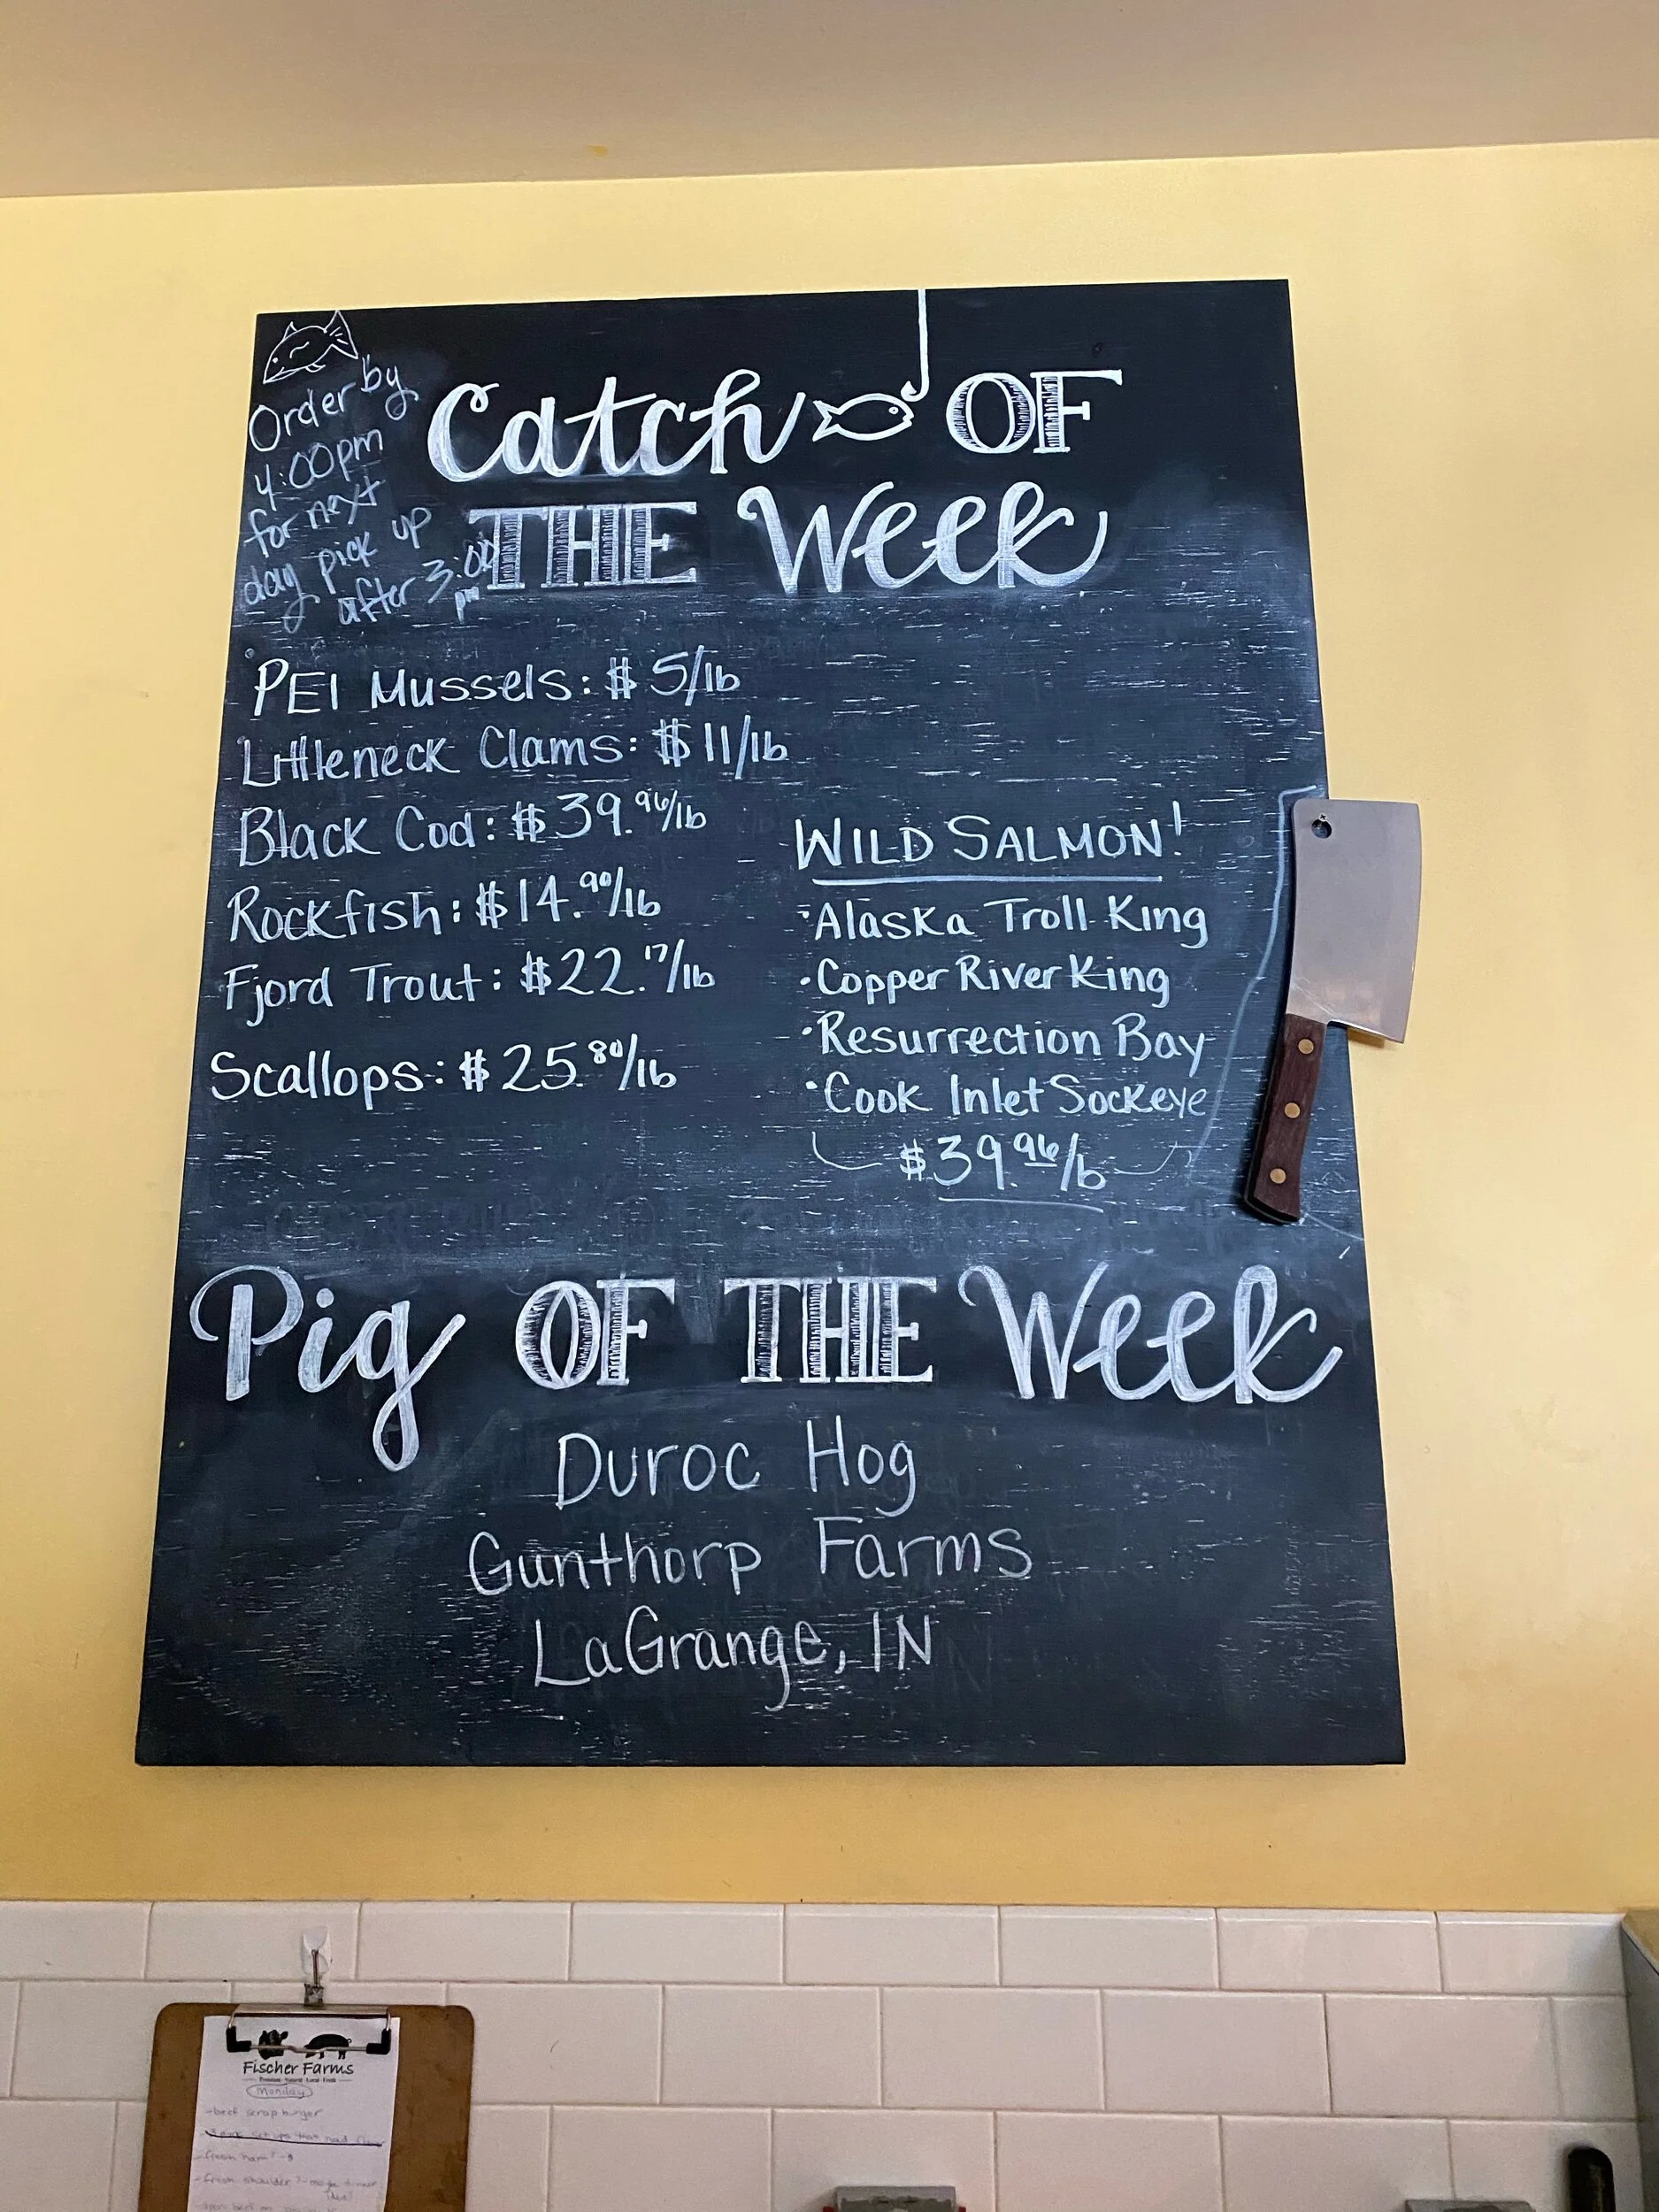 Order by
4:00pm
for next
day pick up
after 3:00
pm
Catch OF
THE Week
PEI Mussels: $5/lb
Littleneck Clams: $11/lb
Black Cod: $39.96/lb
Rockfish: $14.90/lb
Fjord Trout: $22.17/lb
Scallops: $25.80/lb
WILD SALMON!
•Alaska Troll King
•Copper River King
•Resurrection Bay
•Cook Inlet Sockeye
$39.96/lb
Pig OF THE Week
Duroc Hog
Gunthorp Farms
LaGrange, IN
Fischer Farms
Monday
-beef scrap burger